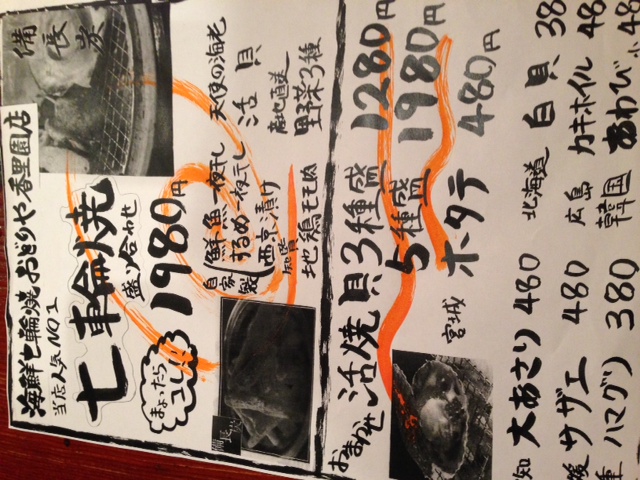 備長炭
海鮮七輪焼おどりや香里園店
当店人気NO1
七輪焼
盛り合わせ
1980円
まよったら
コレ!!
自家製
鮮魚一夜干し
するめ一夜干し
西京漬け
知覧
地鶏モモ肉
天使の海老
活貝
産地直送
野菜3種
備長炭
おまかせ活焼貝3種盛 1280円
5種盛 1980円
宮城 ホタテ 480円
大あさり 480
サザエ 480
ハマグリ 380
北海道 白貝 38
広島 カキホイル 48
韓国 あわび小 48